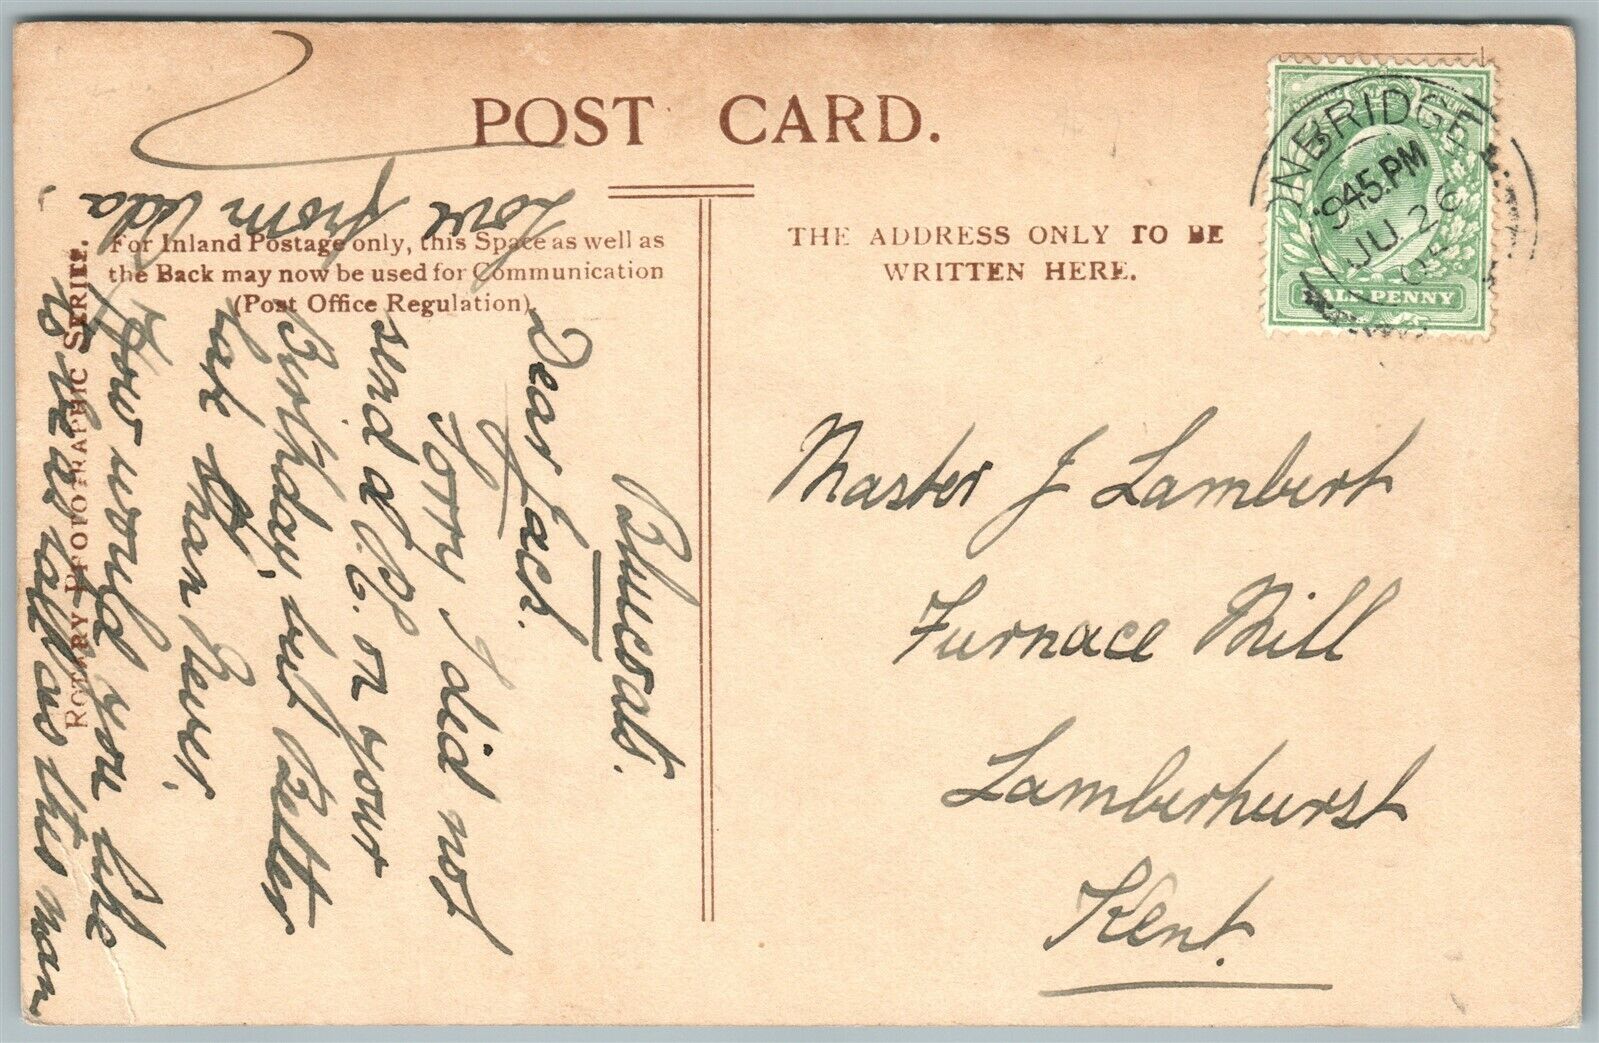 POST CARD.
For Inland Postage only, this Space as well as
the Back may now be used for Communication
(Post Office Regulation).
THE ADDRESS ONLY TO BE
WRITTEN HERE.
ROTARY PHOTOGRAPHIC SERIES.
NBRIDGE
9.45.PM
JU 26
05
HALF PENNY
Master J Lambert
Furnace Mill
Lamberhurst
Kent.
Bluecoats.
Dear Jack.
Sorry I did not
send a P.C. on your
Birthday, but Better
late than Never.
How would you like
to be as tall as this man
Love from Vida